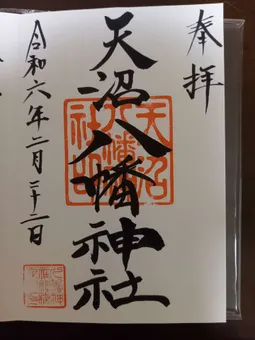 奉拝
天沼八幡神社
令和六年二月二十二日
天沼八幡社印